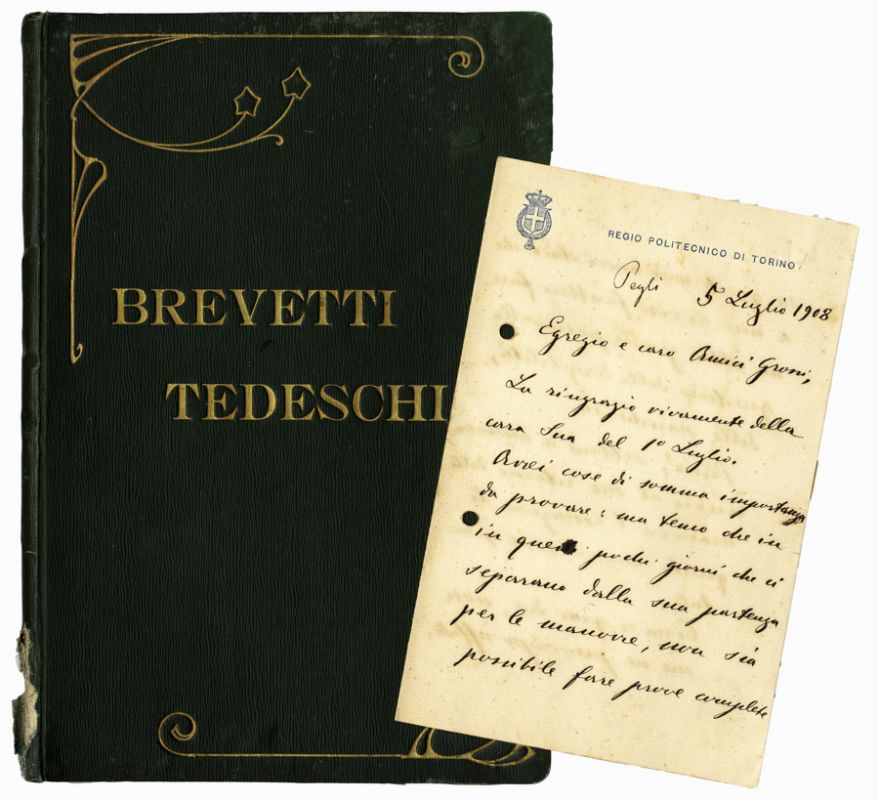 BREVETTI
TEDESCHI
REGIO POLITECNICO DI TORINO
Pegli 5 Luglio 1908
Egregio e caro Amici Grossi,
La ringrazio vivamente della
cara Sua del 1º Luglio.
Avrei cose di somma importanza
da provare: ma temo che in
in questi pochi giorni che ci
separano dalla sua partenza
per le manovre, non sia
possibile fare prove complete